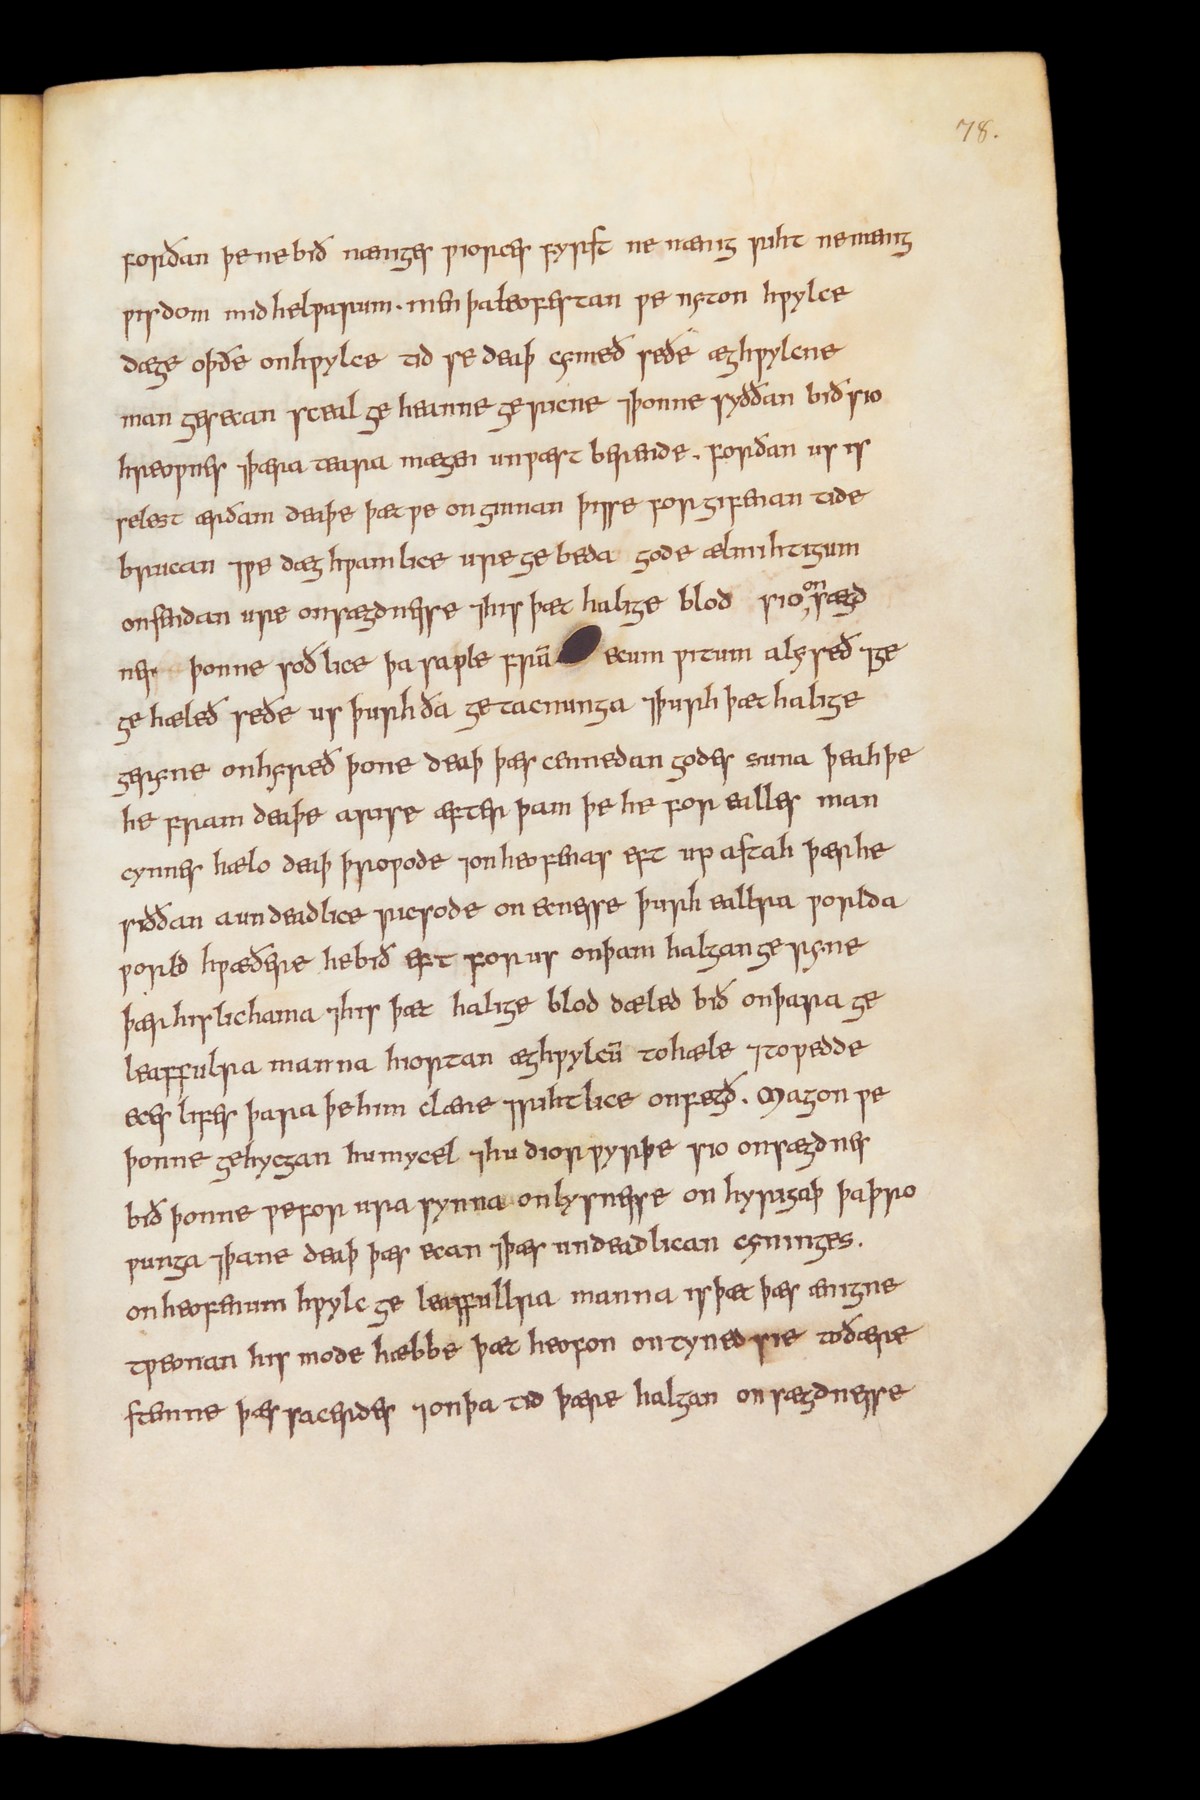 78.
forðan þe ne bið nænges ƿiorces fyrst ne nænig riht ne mænig
ƿisdom mid helƿarum. men þa leofestan ƿe nyton hƿylce
dæge oþðe on hƿylce tid se deaþ cymeð seðe æghƿylcne
man gesecan sceal ge heanne ge ricne ⁊ þonne syððan bið sio
hreoƿnes ⁊ þæra teara mægen unƿæst berende. forðan us is
selest ær ðam deaþe þæt ƿe onginnan þisse forgifenan tide
brucan ⁊ ƿe dæghƿamlice ure gebeda gode ælmihtigum
onsendan ure onsægdnesse ⁊ his þæt halige blod sio onsægd
nes þonne soðlice þa saƿle frā ecum ƿitum alyseð ⁊ ge
ge hæleð seðe us þurh ða getacnunga ⁊ þurh þæt halige
geryne onhyreð þone deaþ þæs cennedan godes suna þeah þe
he fram deaþe arise æfter þam þe he for ealles man
cynnes hælo deaþ þroƿode ⁊ on heofenas eft up astah þær he
siððan a undeadlice ricsode on ecnesse þurh ealra ƿorlda
ƿorld hƿæðere he bið eft for us on þam halgan geryne
þær his lichama ⁊ his þæt halige blod dæled bið on þara ge
leaffulra manna hiortan æghƿylcū to hæle ⁊ to ƿedde
eces lifes þara þe him clæne ⁊ rihtlice onfegð. Magon ƿe
þonne gehycgan hu mycel ⁊ hu diorƿyrþe sio onsægdnes
bið þonne ƿe for ura synna onlysnesse onhyrigaþ þa þro
ƿunga ⁊ þane deaþ þæs ecan ⁊ þæs undeadlican cyninges.
on heofenum hƿylc geleaffulra manna is þæt þæs ænigne
tƿeonan his mode hæbbe þæt heofon ontyned sie to ðære
stenne þæs sacerdes ⁊ on þa tid þære halgan onsægdnesse